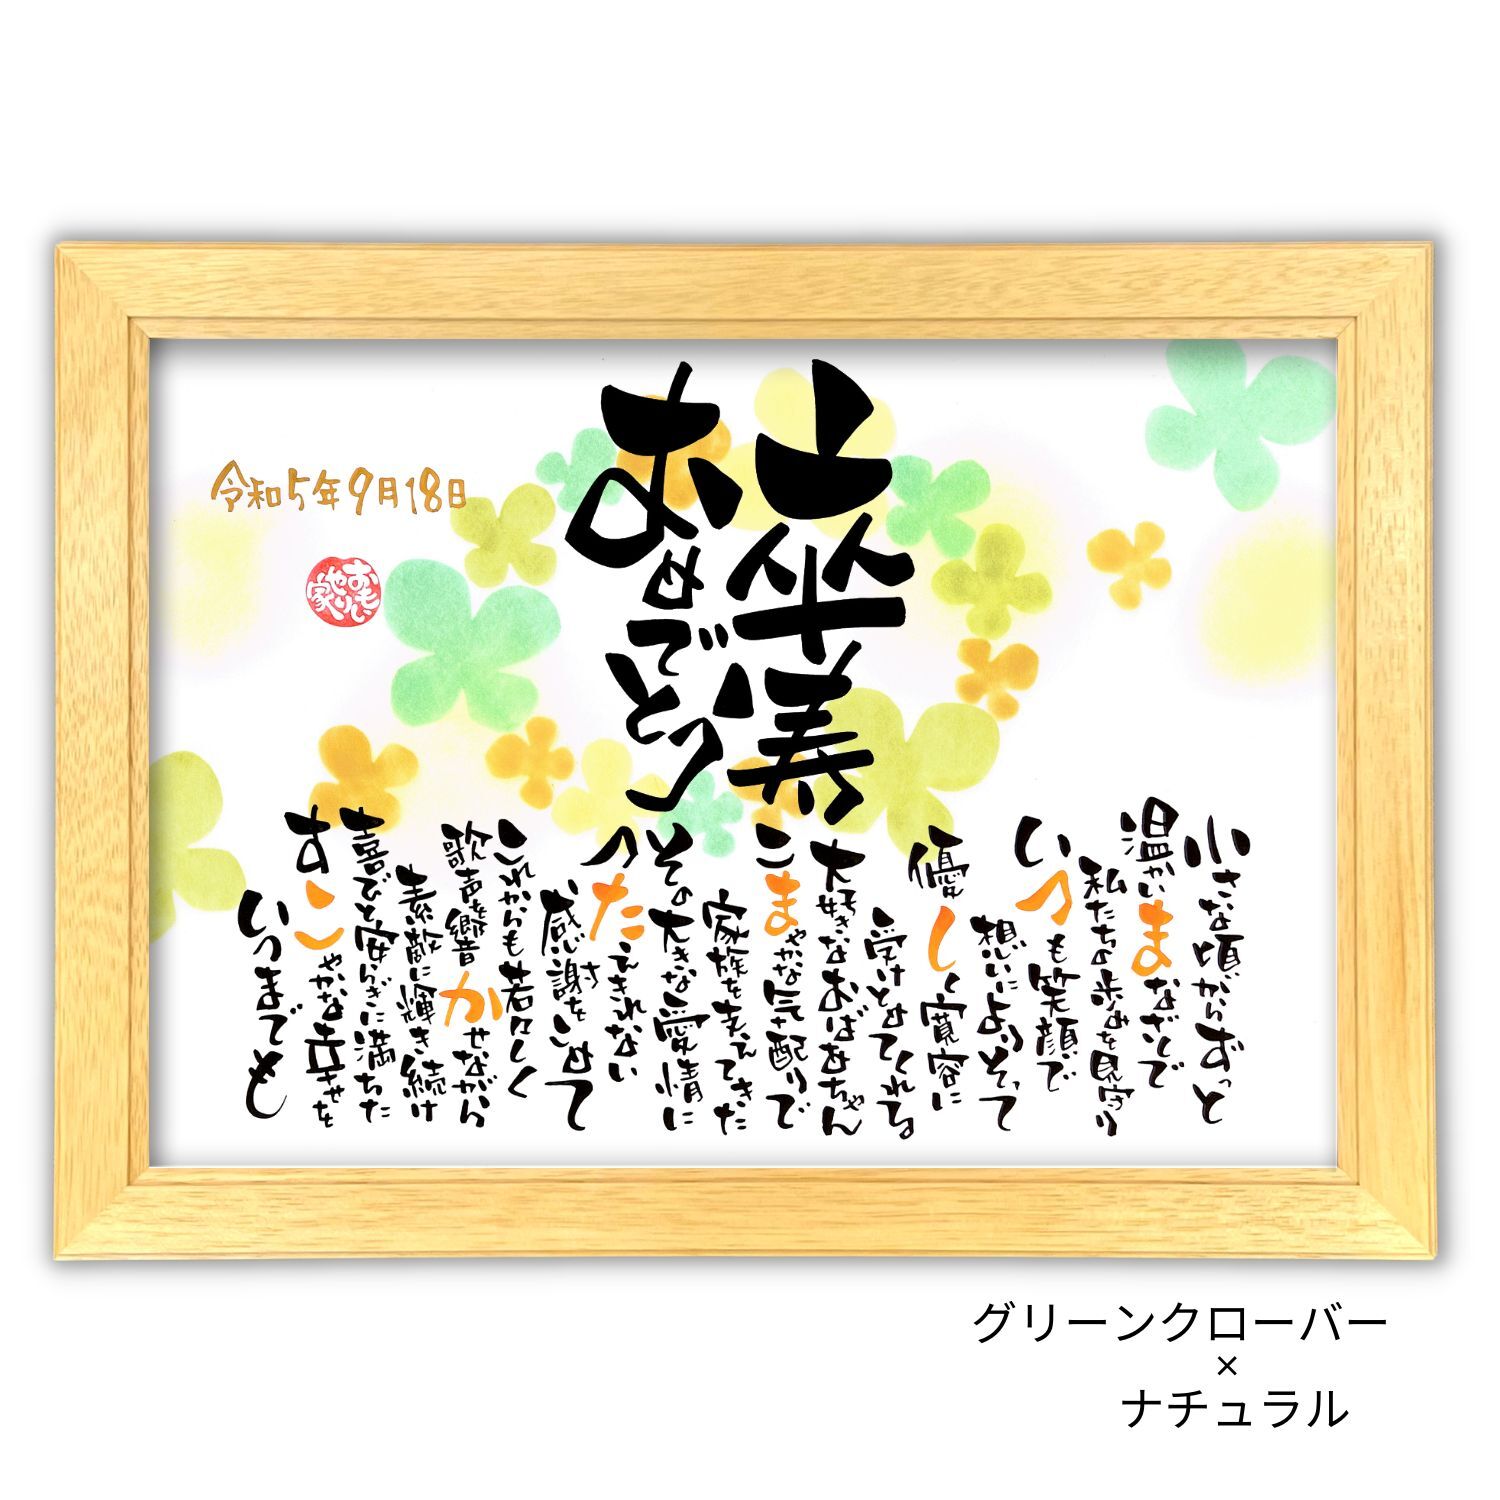 卒寿
おめでとう
令和5年9月18日
おもい
やり
家
小さな頃からずっと
温かいまなざしで
私たちの歩みを見守り
いつも笑顔で
想いによりそって
優しく寛容に
受けとめてくれる
大好きなおばあちゃん
こまやかな気配りで
家族を支えてきた
その大きな愛情に
つたえきれない
感謝をこめて
これからも若々しく
歌声を響かせながら
素敵に輝き続け
喜びと安らぎに満ちた
すこやかな幸せを
いつまでも
グリーンクローバー
×
ナチュラル